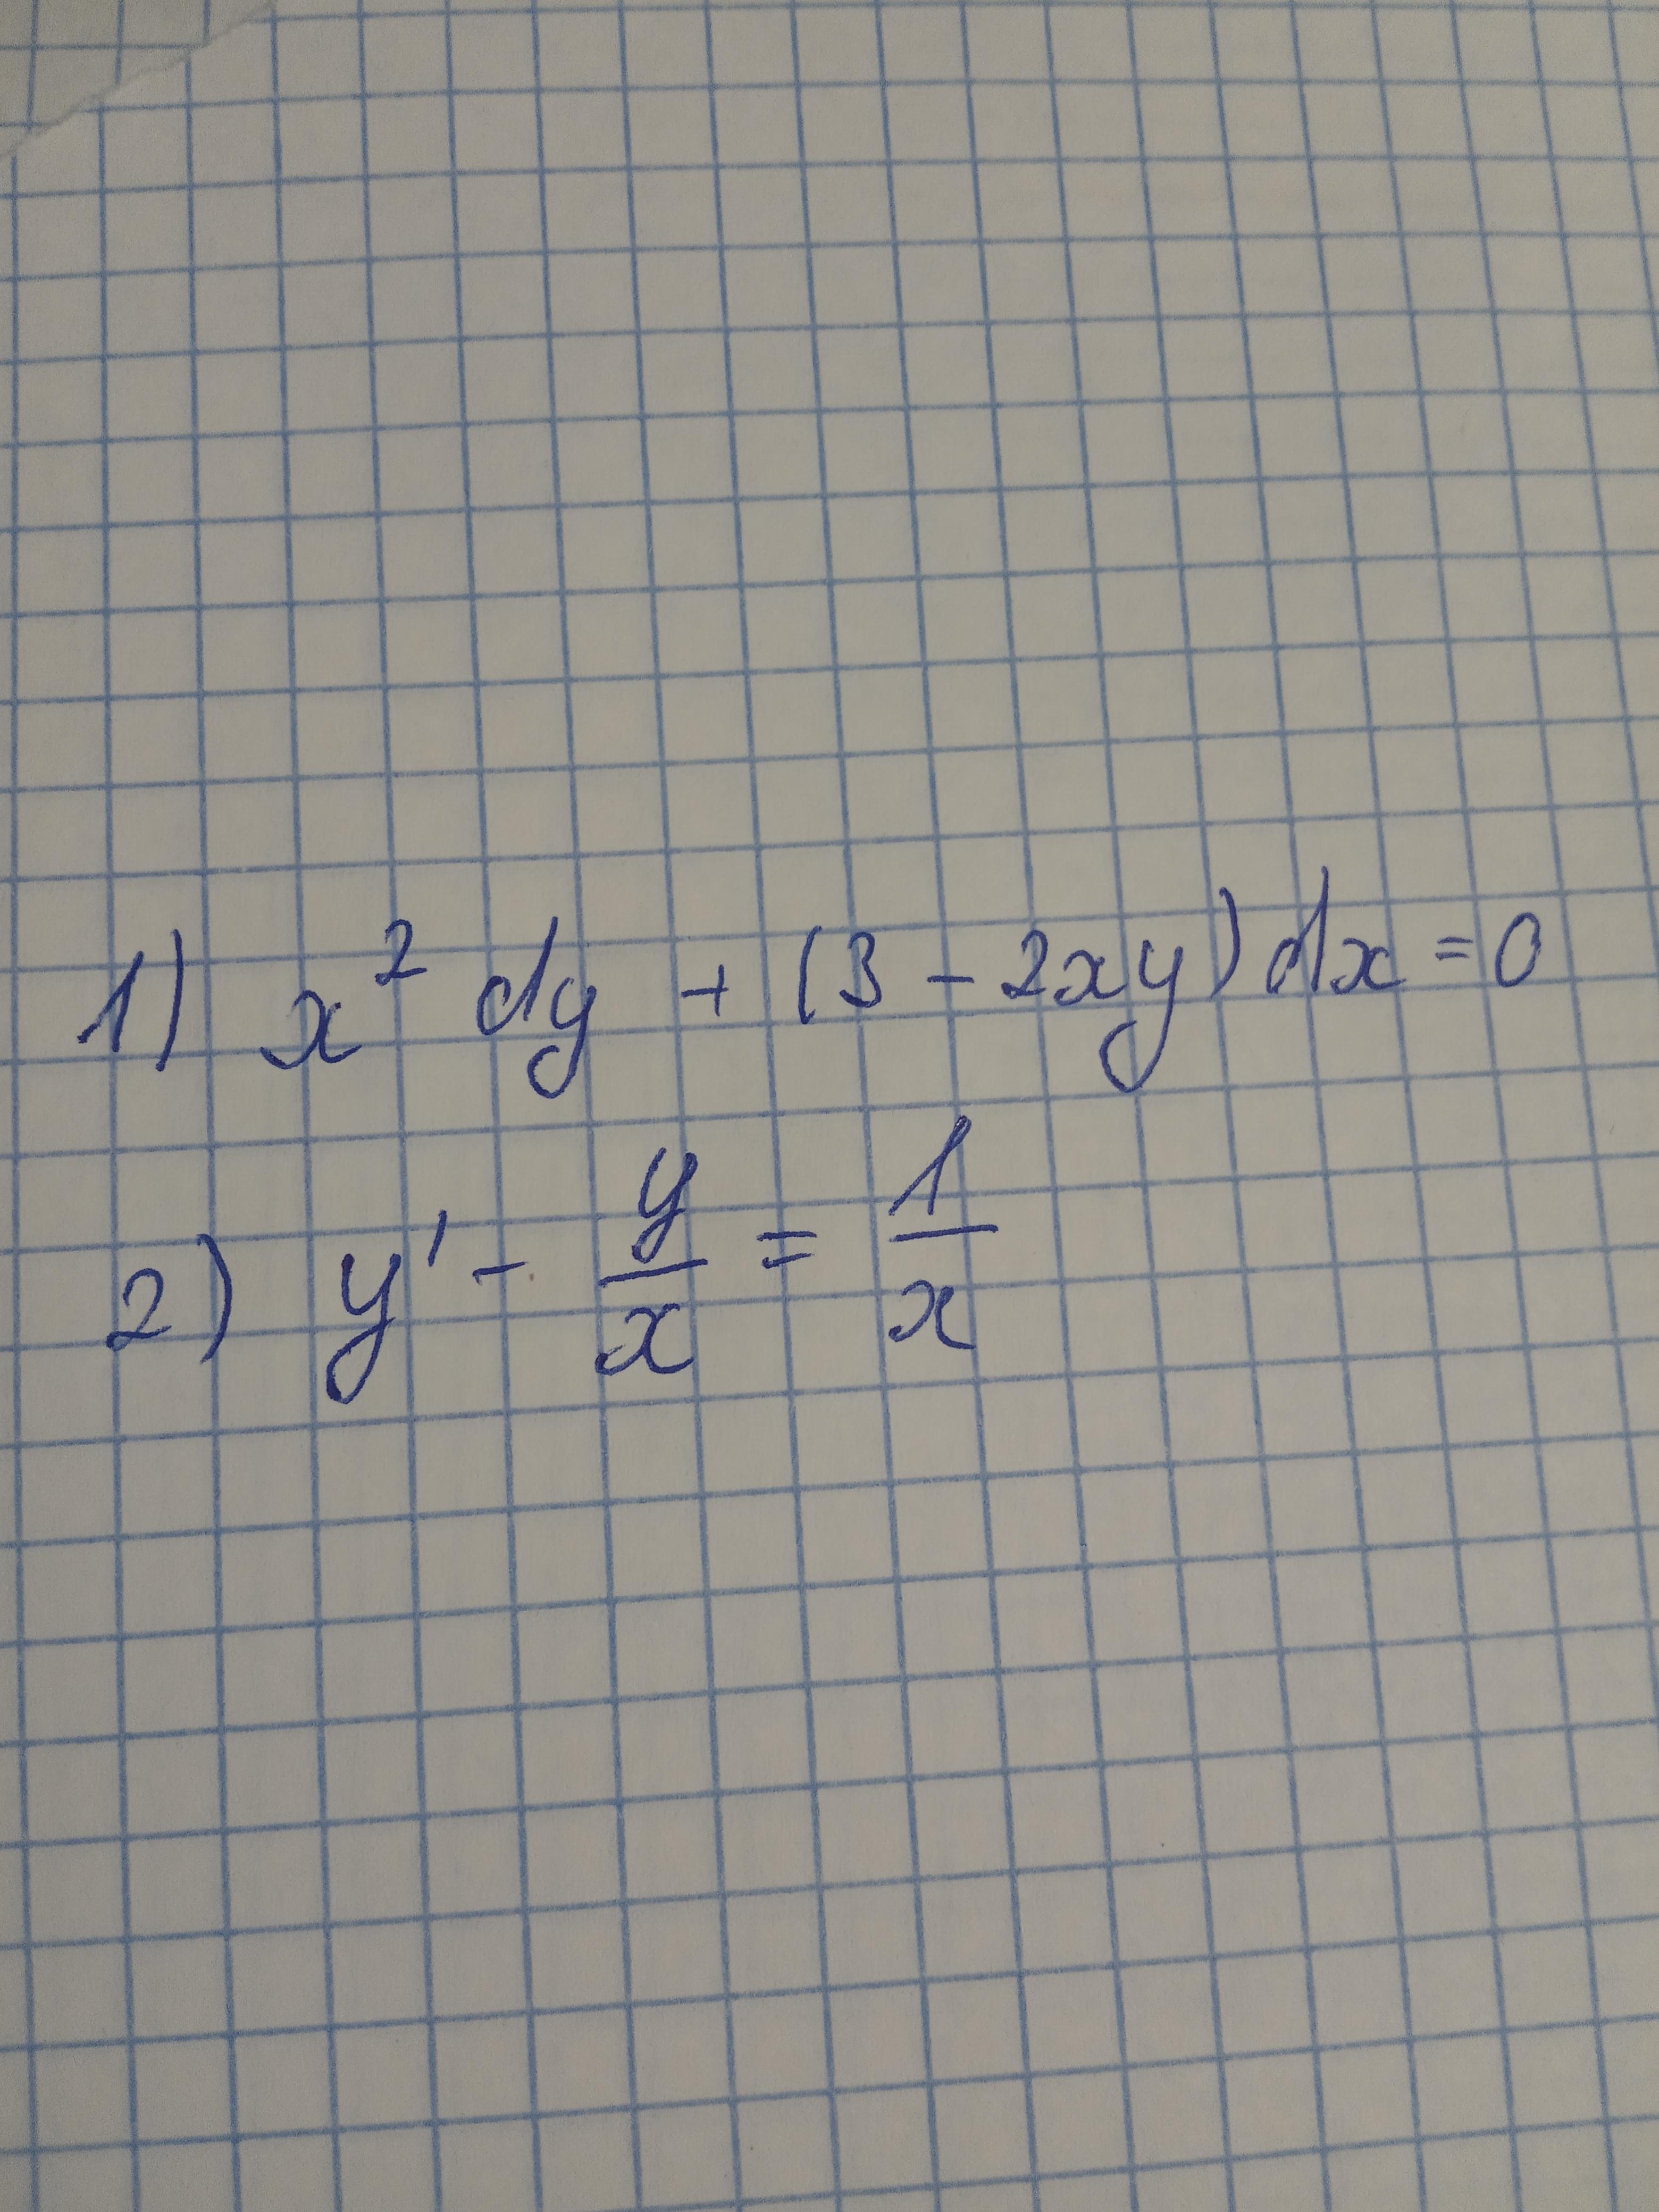 1) x² dy + (3 - 2xy) dx = 0
2) y' - y/x = 1/x